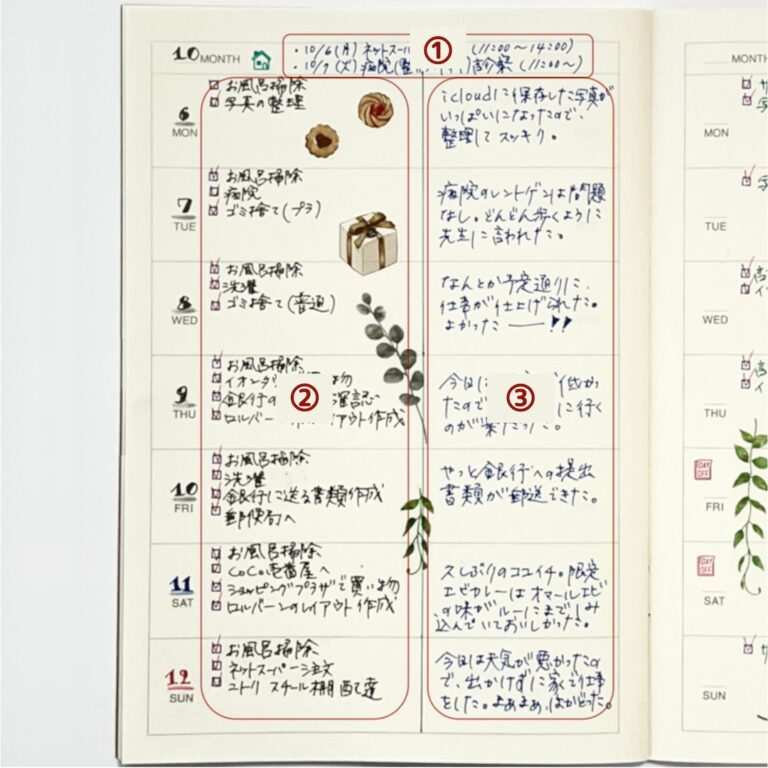 10 MONTH
・10/6(月) ネットスーパー (11:00〜14:00)
・10/7(火) 病院(整 診察 (11:00〜)
①
6
MON
お風呂掃除
写真の整理
icloudに保存した写真が
いっぱいになったので、
整理してスッキリ。
7
TUE
お風呂掃除
病院
ゴミ捨て(プラ)
病院のレントゲンは問題
なし。どんどん歩くように
先生に言われた。
8
WED
お風呂掃除
洗濯
ゴミ捨て(普通)
なんとか予定通りに、
仕事が仕上げられた。
よかったーー!!
9
THU
お風呂掃除
イオン 物
銀行の 確認
ロルバーン イアウト作成
②
今日は 低かっ
たので に行く
のが
③
10
FRI
お風呂掃除
洗濯
銀行に送る書類作成
郵便局へ
やっと銀行への提出
書類が郵送できた。
11
SAT
お風呂掃除
CoCo壱番屋へ
ショッピングプラザで買い物
ロルバーンのレイアウト作成
久しぶりのココイチ。限定
エビカレーはオマールエビ
の味がルーにまでしみ
込んでいておいしかった。
12
SUN
お風呂掃除
ネットスーパー注文
ニトリ スチール棚配達
今日は天気が悪かったの
で、出かけずに家で仕事
をした。まあまあ、はかどった。
MONTH
MON
TUE
WED
THU
DAY OFF
FRI
DAY OFF
SAT
SUN